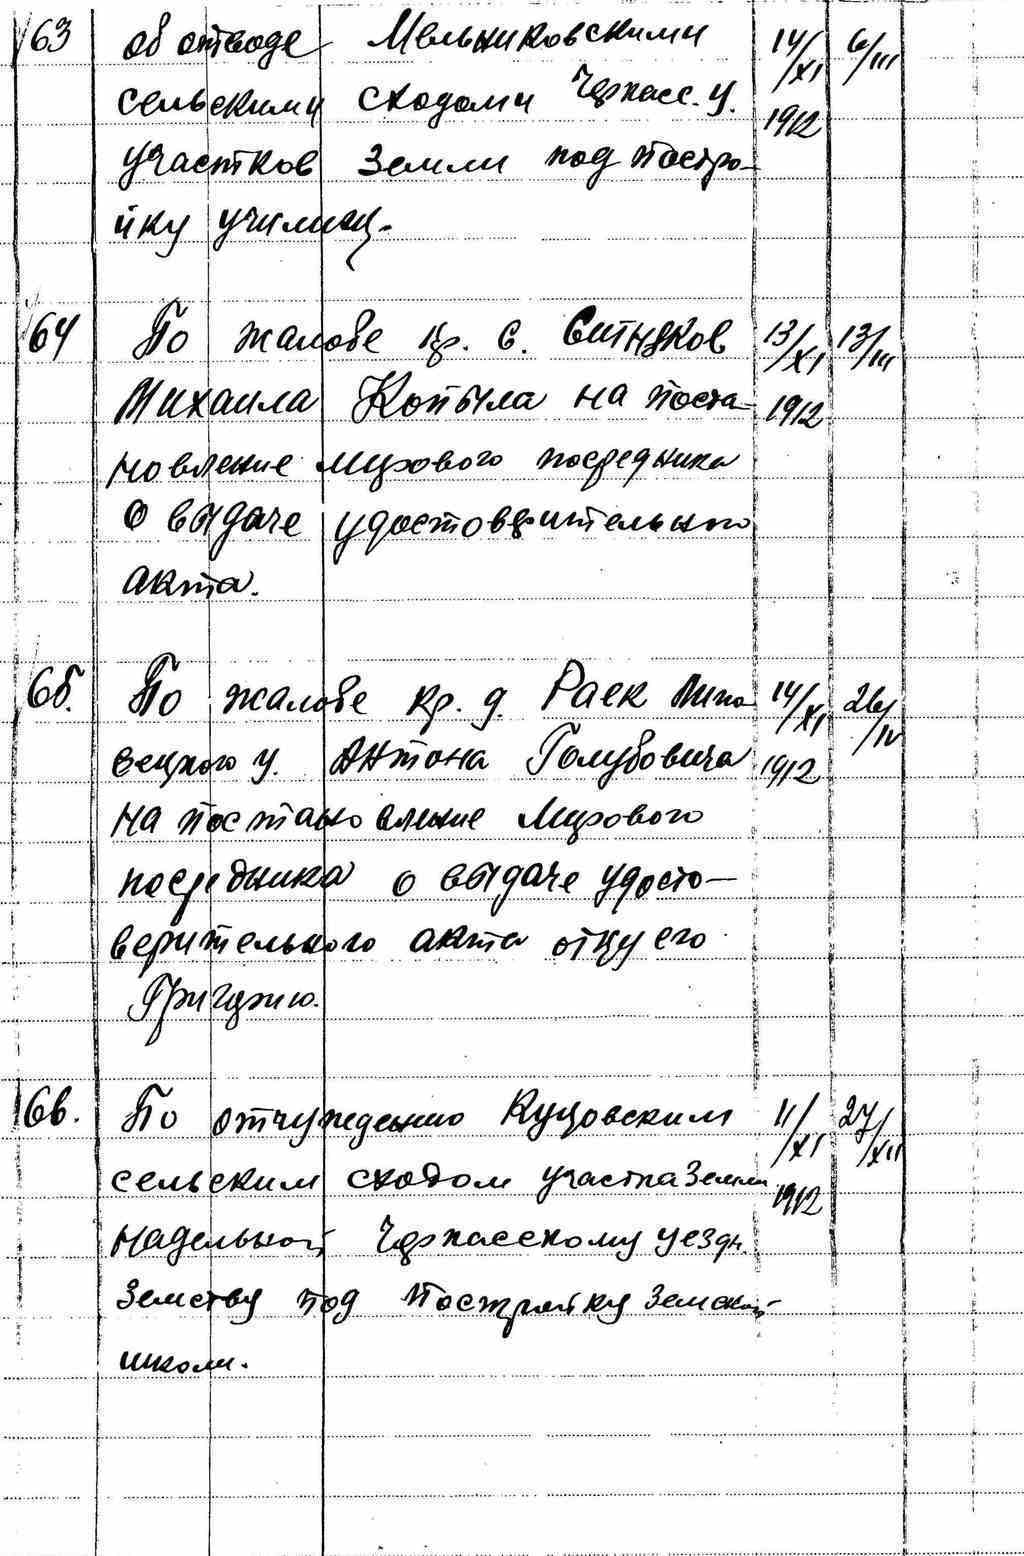 63 об отводе Мельниковскими 14/XI 6/III
сельскими сходами Черкасс. у. 1912
участков земли под постро-
йку училищ.
64 По жалобе кр. с. Ситников 13/XI 13/III
Михаила Копыла на поста- 1912
новление мирового посредника
о выдаче удостоверительного
акта.
65. По жалобе кр. д. Раек Липо- 14/XI 26/IV
вецкого у. Антона Голубовича 1912
на постановление мирового
посредника о выдаче удосто-
верительного акта отцу его
Григорию.
66. По отчуждению Куцовским 11/XI 27/XII
сельским сходом участка земли 1912
надельной Черкасскому уездн.
земству под постройку земской
школи.